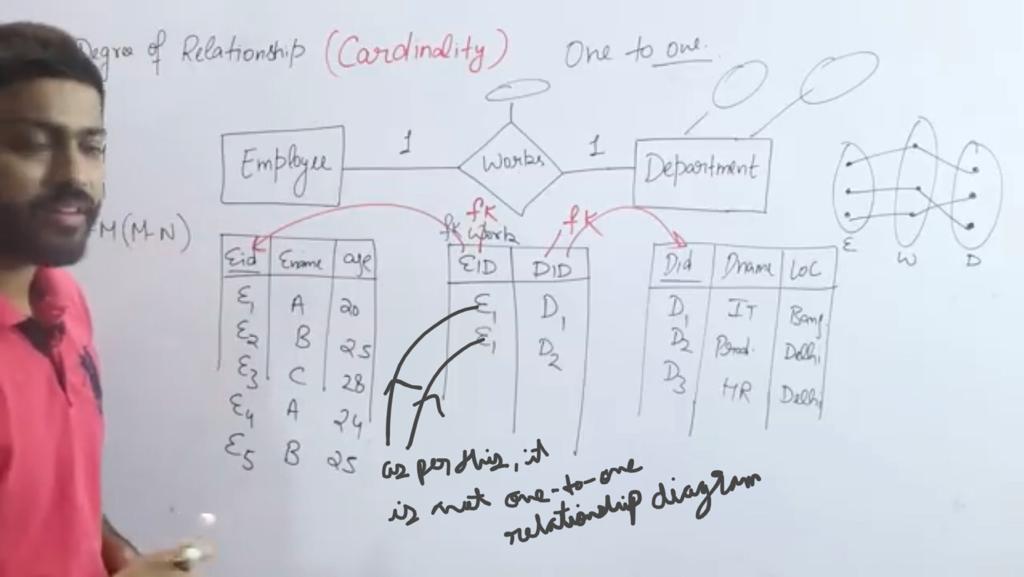 Degree of Relationship (Cardinality) One to one.
Employee 1 Works 1 Department
M(M-N)
fK fK
fK Work
Eid Ename age
E1 A 20
E2 B 25
E3 C 28
E4 A 24
E5 B 25
EID DID
E1 D1
E1 D2
Did Dname Loc
D1 IT Bang.
D2 Prod. Delhi
D3 HR Delhi
E W D
as per this, it
is not one-to-one
relationship diagram